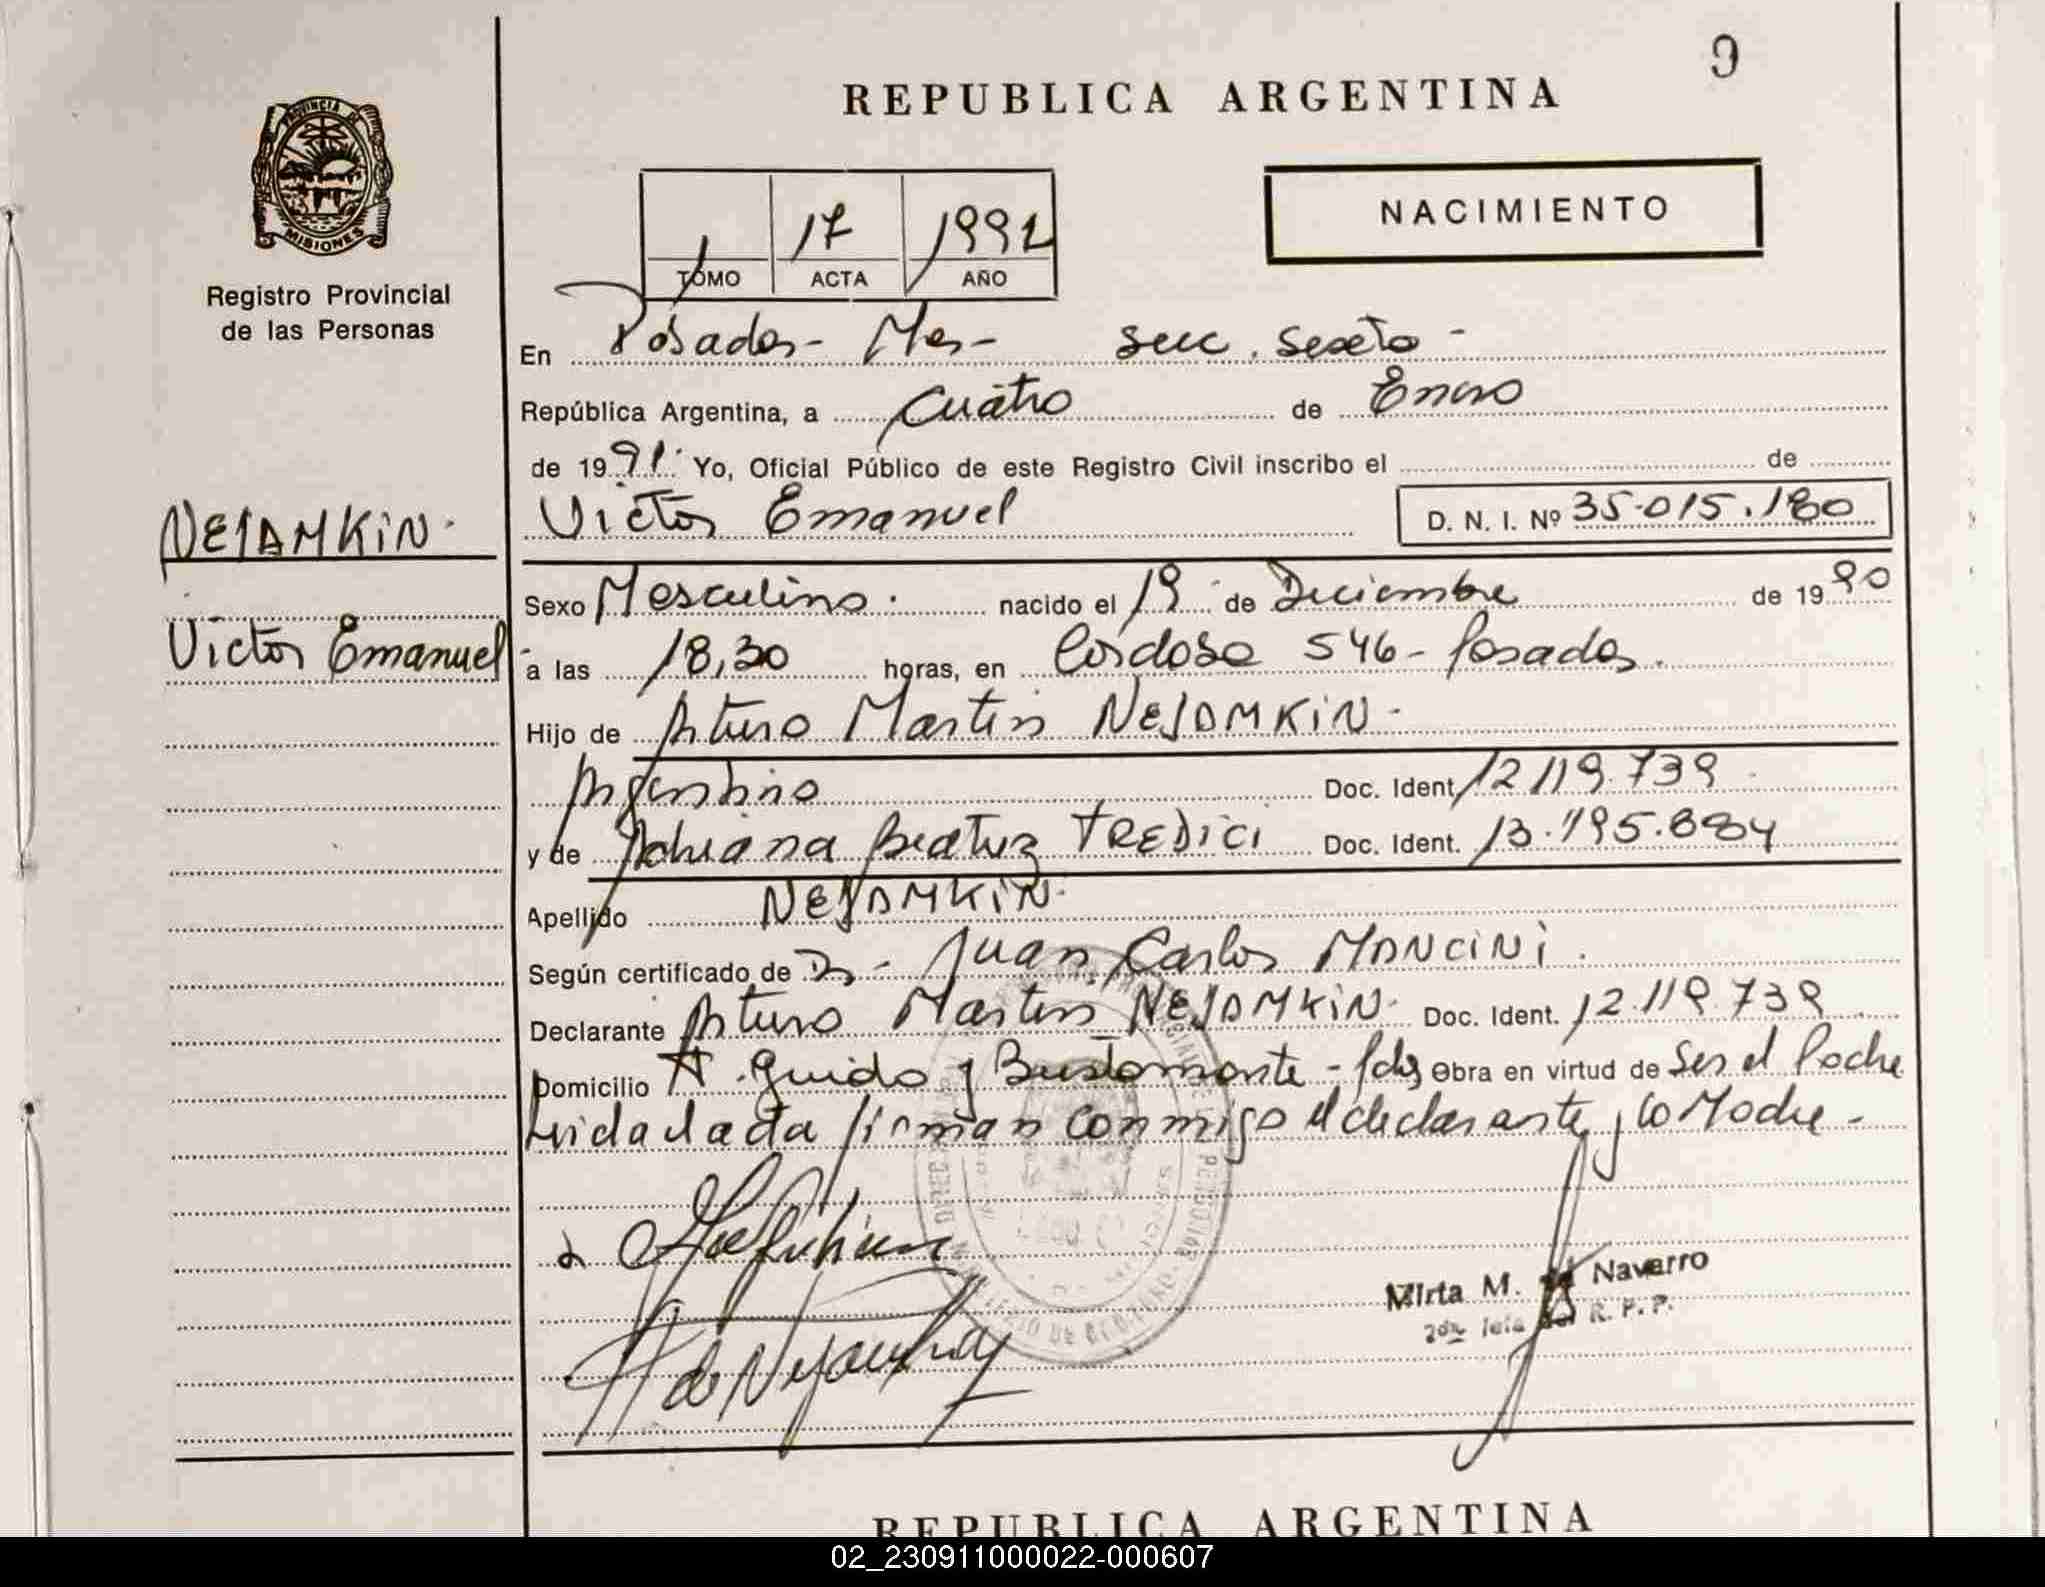 9
REPUBLICA ARGENTINA
PROVINCIA DE
MISIONES
Registro Provincial
de las Personas
1 17 1991
TOMO ACTA AÑO
NACIMIENTO
En Posadas - Mnes - secc. sexta -
República Argentina, a cuatro de Enero
de 1991. Yo, Oficial Público de este Registro Civil inscribo el de
Victor Emanuel D. N. I. Nº 35.015.180
NEJAMKIN.
Victor Emanuel
Sexo Masculino. nacido el 19 de Diciembre de 1990
a las 18,30 horas, en Cordoba 546 - Posadas.
Hijo de Arturo Martin NEJAMKIN.
Argentino Doc. Ident. 12.119.739
y de Adriana Beatriz TREDICI Doc. Ident. 13.195.884
Apellido NEJAMKIN.
Según certificado de Dr - Juan Carlos MANCINI.
Declarante Arturo Martin NEJAMKIN. Doc. Ident. 12.119.739
Domicilio A. Guido y Bustamante - Pdas Obra en virtud de Ser el Padre
Leida el acta firman conmigo el declarante y la Madre -
Mirta M. de Navarro
2da Jefa del R. P. P.
REPUBLICA ARGENTINA
02_230911000022-000607